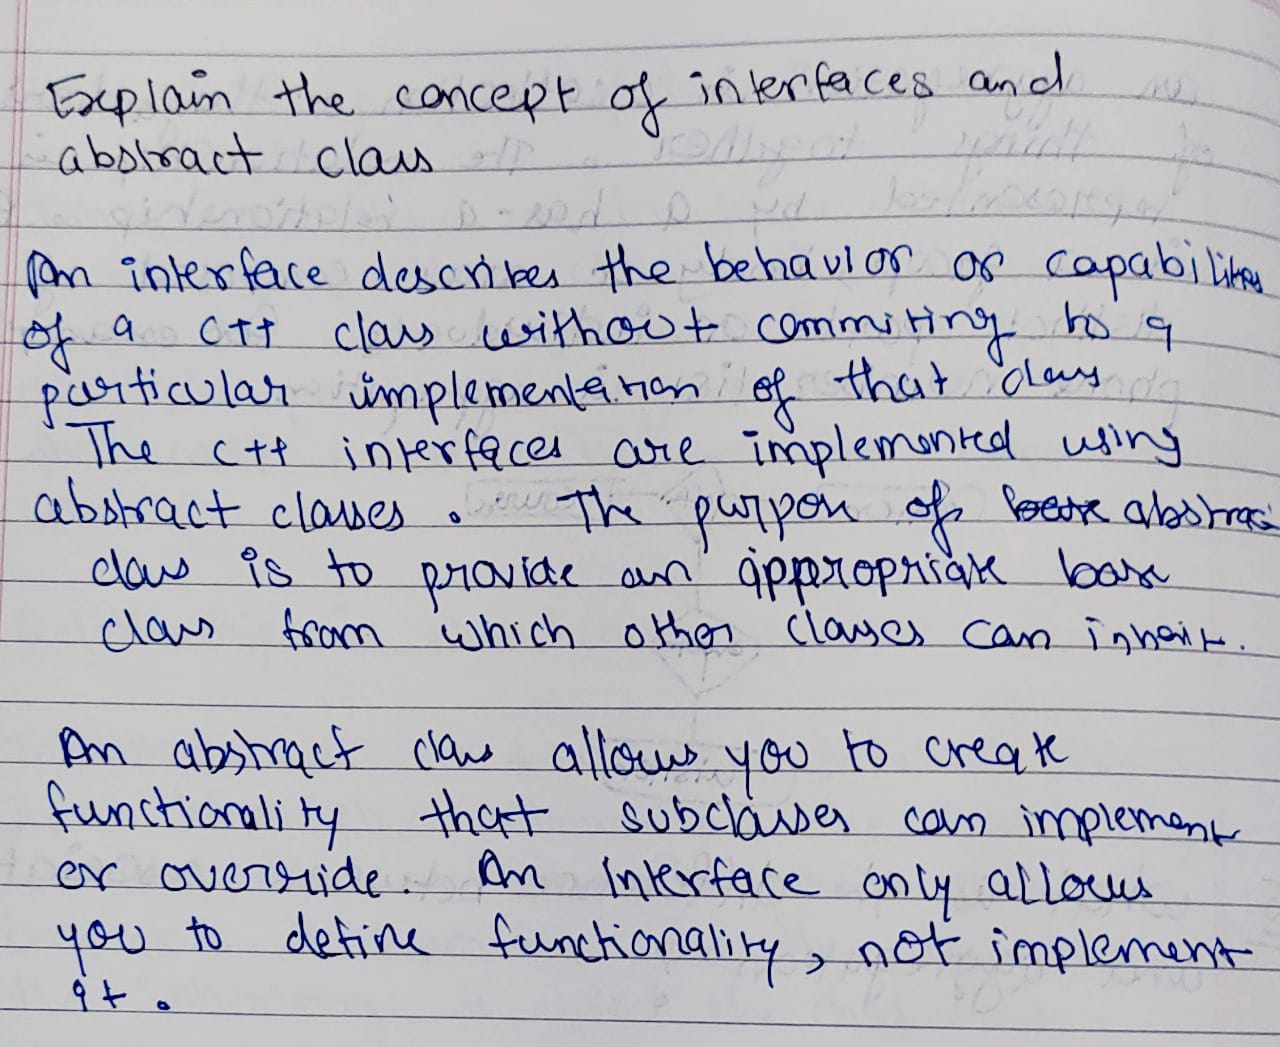 Explain the concept of interfaces and
abstract class
An interface describes the behavior or capabilities
of a C++ class without commiting to a
particular implementation of that class
The C++ interfaces are implemented using
abstract classes. The purpose of abstract
class is to provide an appropriate base
class from which other classes can inherit.
An abstract class allows you to create
functionality that subclasses can implement
or override. An Interface only allows
you to define functionality, not implement
it.